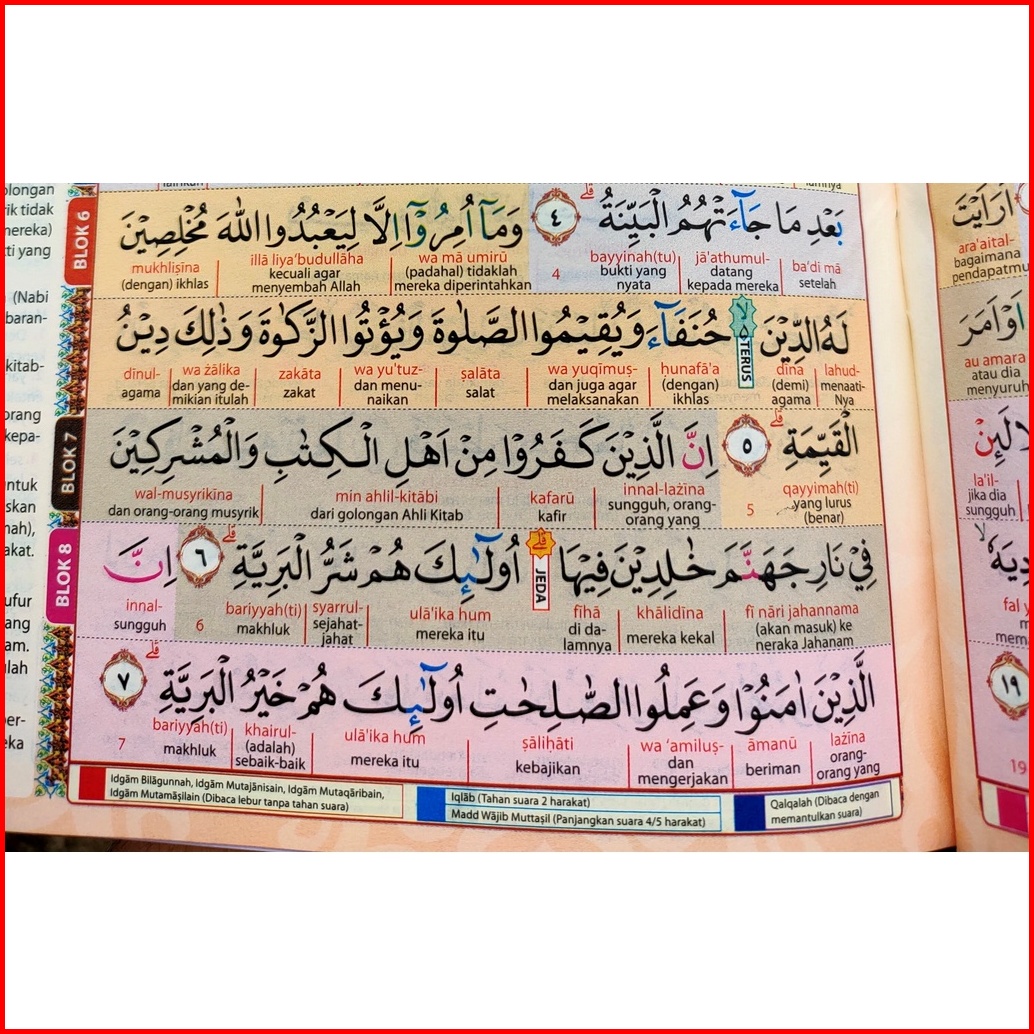 بَعْدِ مَا جَاۤءَتْهُمُ الْبَيِّنَةُ ۗ ٤ وَمَآ اُمِرُوْٓا اِلَّا لِيَعْبُدُوا اللّٰهَ مُخْلِصِيْنَ
ba'di mā
setelah
jā'athumul-
datang
kepada mereka
bayyinah(tu)
bukti yang
nyata
4
wa mā umirū
(padahal) tidaklah
mereka diperintahkan
illā liya'budullāha
kecuali agar
menyembah Allah
mukhliṣīna
(dengan) ikhlas
BLOK 6
لَهُ الدِّيْنَ ەۙ حُنَفَاۤءَ وَيُقِيْمُوا الصَّلٰوةَ وَيُؤْتُوا الزَّكٰوةَ وَذٰلِكَ دِيْنُ
TERUS
lahud-
menaati-
Nya
dīna
(demi)
agama
ḥunafā'a
(dengan)
ikhlas
wa yuqīmuṣ-
dan juga agar
melaksanakan
ṣalāta
salat
wa yu'tuz-
dan menu-
naikan
zakāta
zakat
wa żālika
dan yang de-
mikian itulah
dīnul-
agama
الْقَيِّمَةِ ۗ ٥ اِنَّ الَّذِيْنَ كَفَرُوْا مِنْ اَهْلِ الْكِتٰبِ وَالْمُشْرِكِيْنَ
qayyimah(ti)
yang lurus
(benar)
5
innal-lażīna
sungguh, orang-
orang yang
kafarū
kafir
min ahlil-kitābi
dari golongan Ahli Kitab
wal-musyrikīna
dan orang-orang musyrik
BLOK 7
فِيْ نَارِ جَهَنَّمَ خٰلِدِيْنَ فِيْهَا ۗ اُولٰۤىِٕكَ هُمْ شَرُّ الْبَرِيَّةِ ۗ ٦ اِنَّ
JEDA
fī nāri jahannama
(akan masuk) ke
neraka Jahanam
khālidīna
mereka kekal
fīhā
di da-
lamnya
ulā'ika hum
mereka itu
syarrul-
sejahat-
jahat
bariyyah(ti)
makhluk
6
innal-
sungguh
BLOK 8
الَّذِيْنَ اٰمَنُوْا وَعَمِلُوا الصّٰلِحٰتِ اُولٰۤىِٕكَ هُمْ خَيْرُ الْبَرِيَّةِ ۗ ٧
lażīna
orang-
orang yang
āmanū
beriman
wa 'amiluṣ-
dan
mengerjakan
ṣāliḥāti
kebajikan
ulā'ika hum
mereka itu
khairul-
(adalah)
sebaik-baik
bariyyah(ti)
makhluk
7
Idgām Bilāgunnah, Idgām Mutajānisain, Idgām Mutaqāribain,
Idgām Mutamāṡilain (Dibaca lebur tanpa tahan suara)
Iqlāb (Tahan suara 2 harakat)
Madd Wājib Muttaṣil (Panjangkan suara 4/5 harakat)
Qalqalah (Dibaca dengan
memantulkan suara)
اَرَاَيْتَ
ara'aital-
bagaimana
pendapatmu
اَوْ اَمَرَ
au amara
atau dia
menyuruh
la'il-
jika dia
sungguh
١٩
19
rik tidak
(Nabi